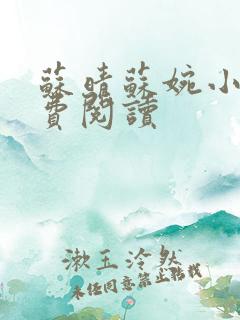 蘇晴蘇婉小
費閱讀
漱玉泠然
未經同意禁止轉載